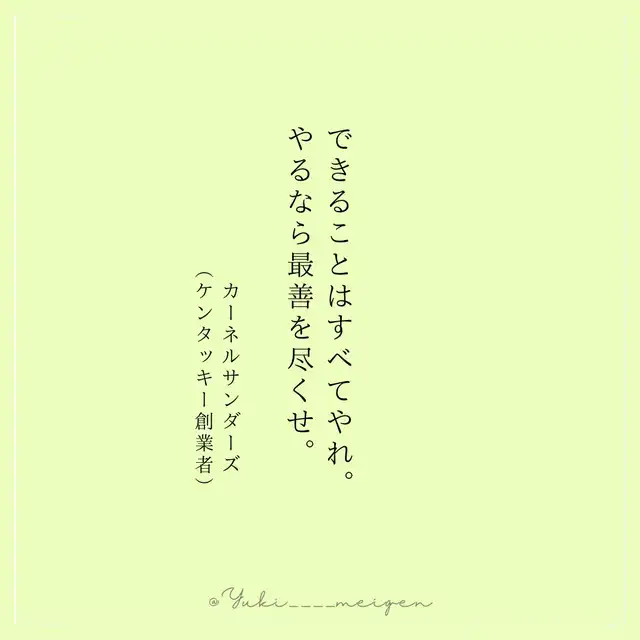 できることはすべてやれ。
やるなら最善を尽くせ。
カーネルサンダーズ
（ケンタッキー創業者）
@Yuki____meigen